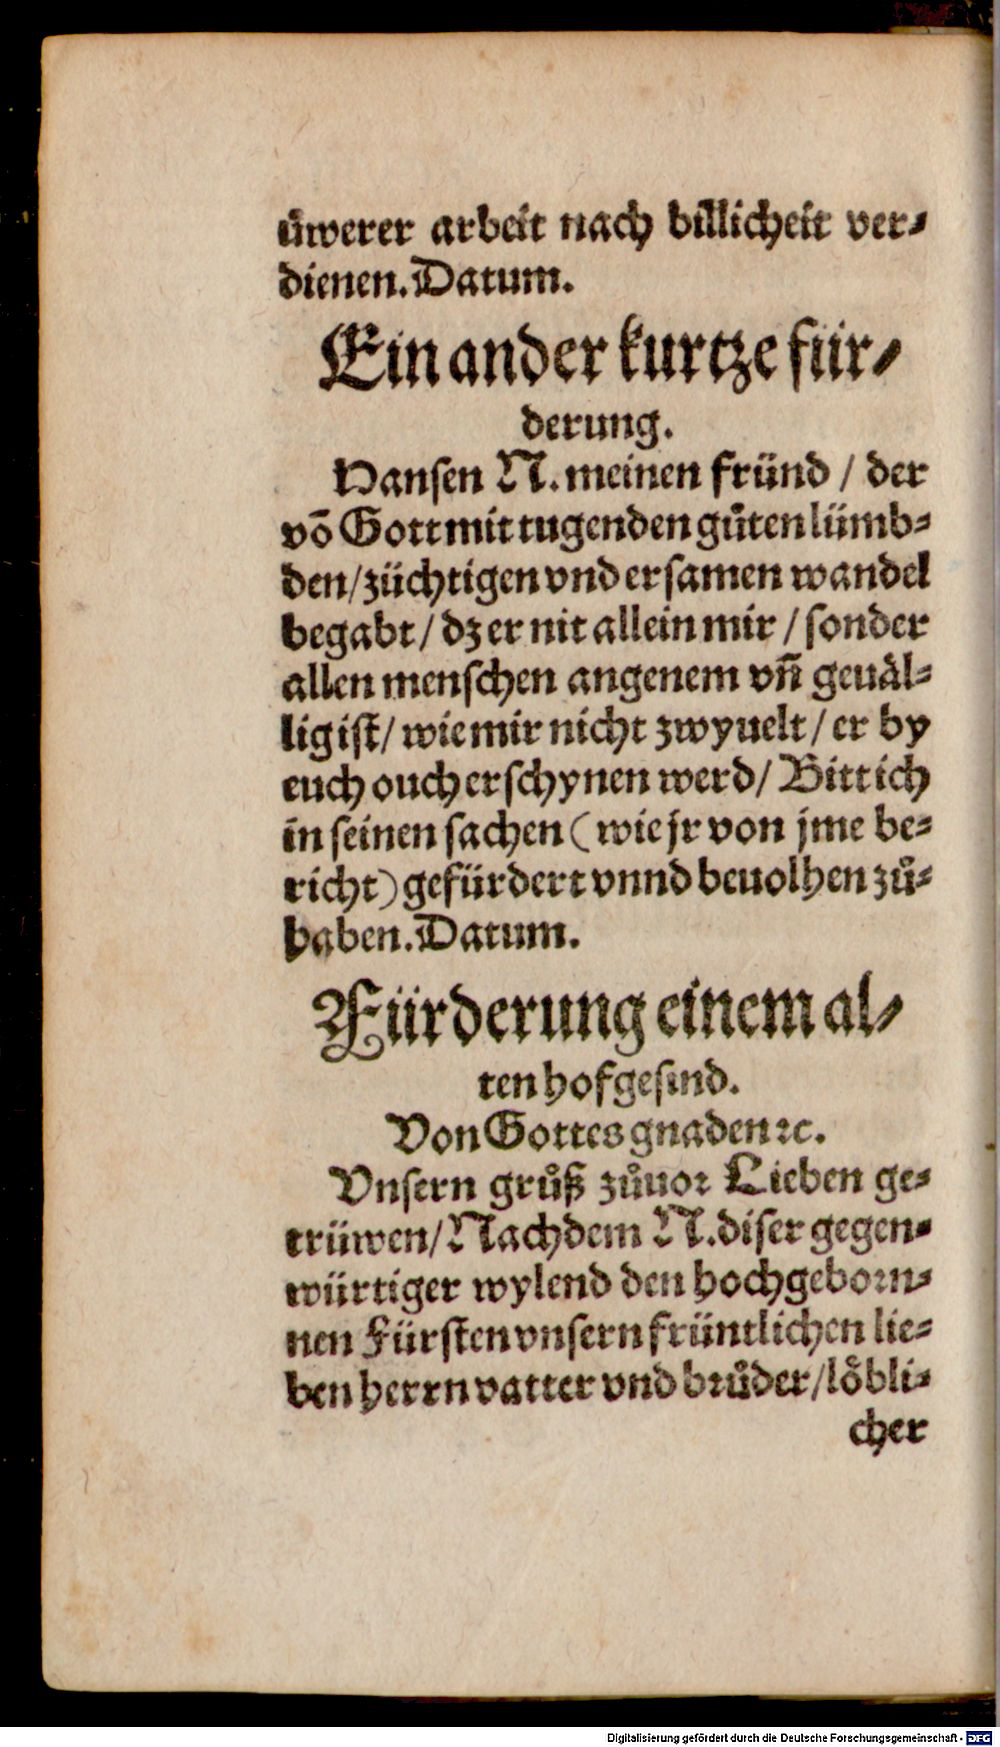 üwerer arbeit nach billicheit ver⸗
dienen. Datum.
Ein ander kurtze für⸗
derung.
Hansen N. meinen fründ / der
võ Gott mit tugenden gůten lümb⸗
den / züchtigen vnd ersamen wandel
begabt / dz er nit allein mir / sonder
allen menschen angenem vñ geuäl⸗
lig ist / wie mir nicht zwyuelt / er by
euch ouch erschynen werd / Bitt ich
in seinen sachen (wie jr von jme be⸗
richt) gefürdert vnnd beuolhen zů⸗
haben. Datum.
Fürderung einem al⸗
ten hofgesind.
Von Gottes gnaden ꝛc.
Vnsern grůß zůuor Lieben ge⸗
trüwen / Nachdem N. diser gegen⸗
würtiger wylend den hochgeborn⸗
nen Fürsten vnsern früntlichen lie⸗
ben herrn vatter vnd brůder / löbli⸗
cher
Digitalisierung gefördert durch die Deutsche Forschungsgemeinschaft - DFG